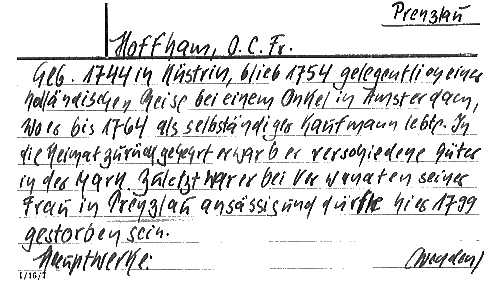 Prenzlau
Hoffham, O. C. Fr.
Geb. 1744 in Küstrin, blieb 1754 gelegentlich einer
holländischen Reise bei einem Onkel in Amsterdam,
wo er bis 1764 als selbständiger Kaufmann lebte. In
die Heimat zurückgekehrt erwarb er verschiedene Güter
in der Mark. Zuletzt war er bei Verwandten seiner
Frau in Prenzlau ansässig und dürfte hier 1799
gestorben sein.
Hauptwerke: (wenden)